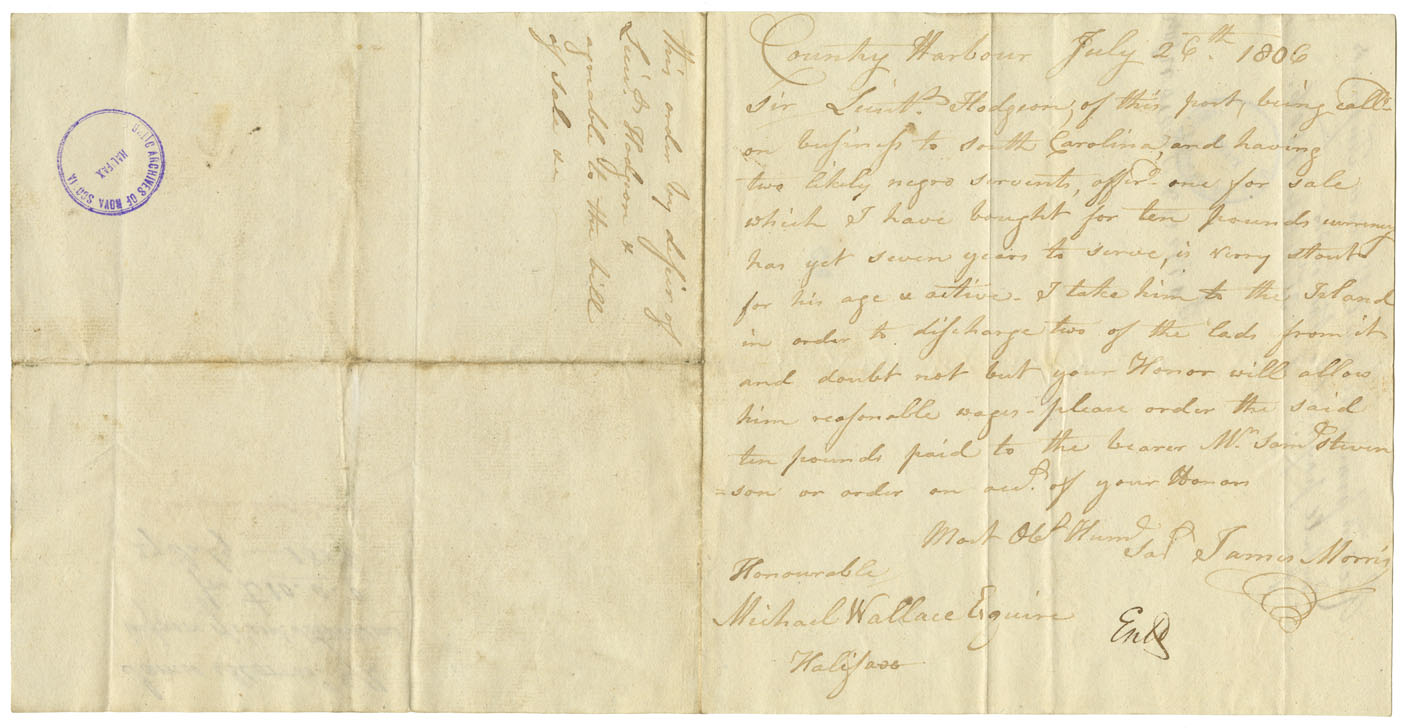 County Harbour July 26.th 1806
Sir Lieut.t Hodgson, of this port, being call.d
on business to south Carolina, and having
two likely negro servents, offer.d one for sale
which I have bought for ten pounds currency
has yet seven years to serve, is verry stout
for his age & active - I take him to the Island
in order to discharge two of the lads from it
and doubt not but your Honor will allow
him reasonable wages - please order the said
ten pounds paid to the bearer Mr. Sam.l Steven
=son or order on acc.t of your Honors
Most Ob.t Hum.e
Ser.t James Morris
Honourable
Michael Wallace Esquire
Halifax
Ent.d
this order by desire of
Lieu.t Hodgson
agreable to the bill
of sale
PUBLIC ARCHIVES OF NOVA SCOTIA
HALIFAX